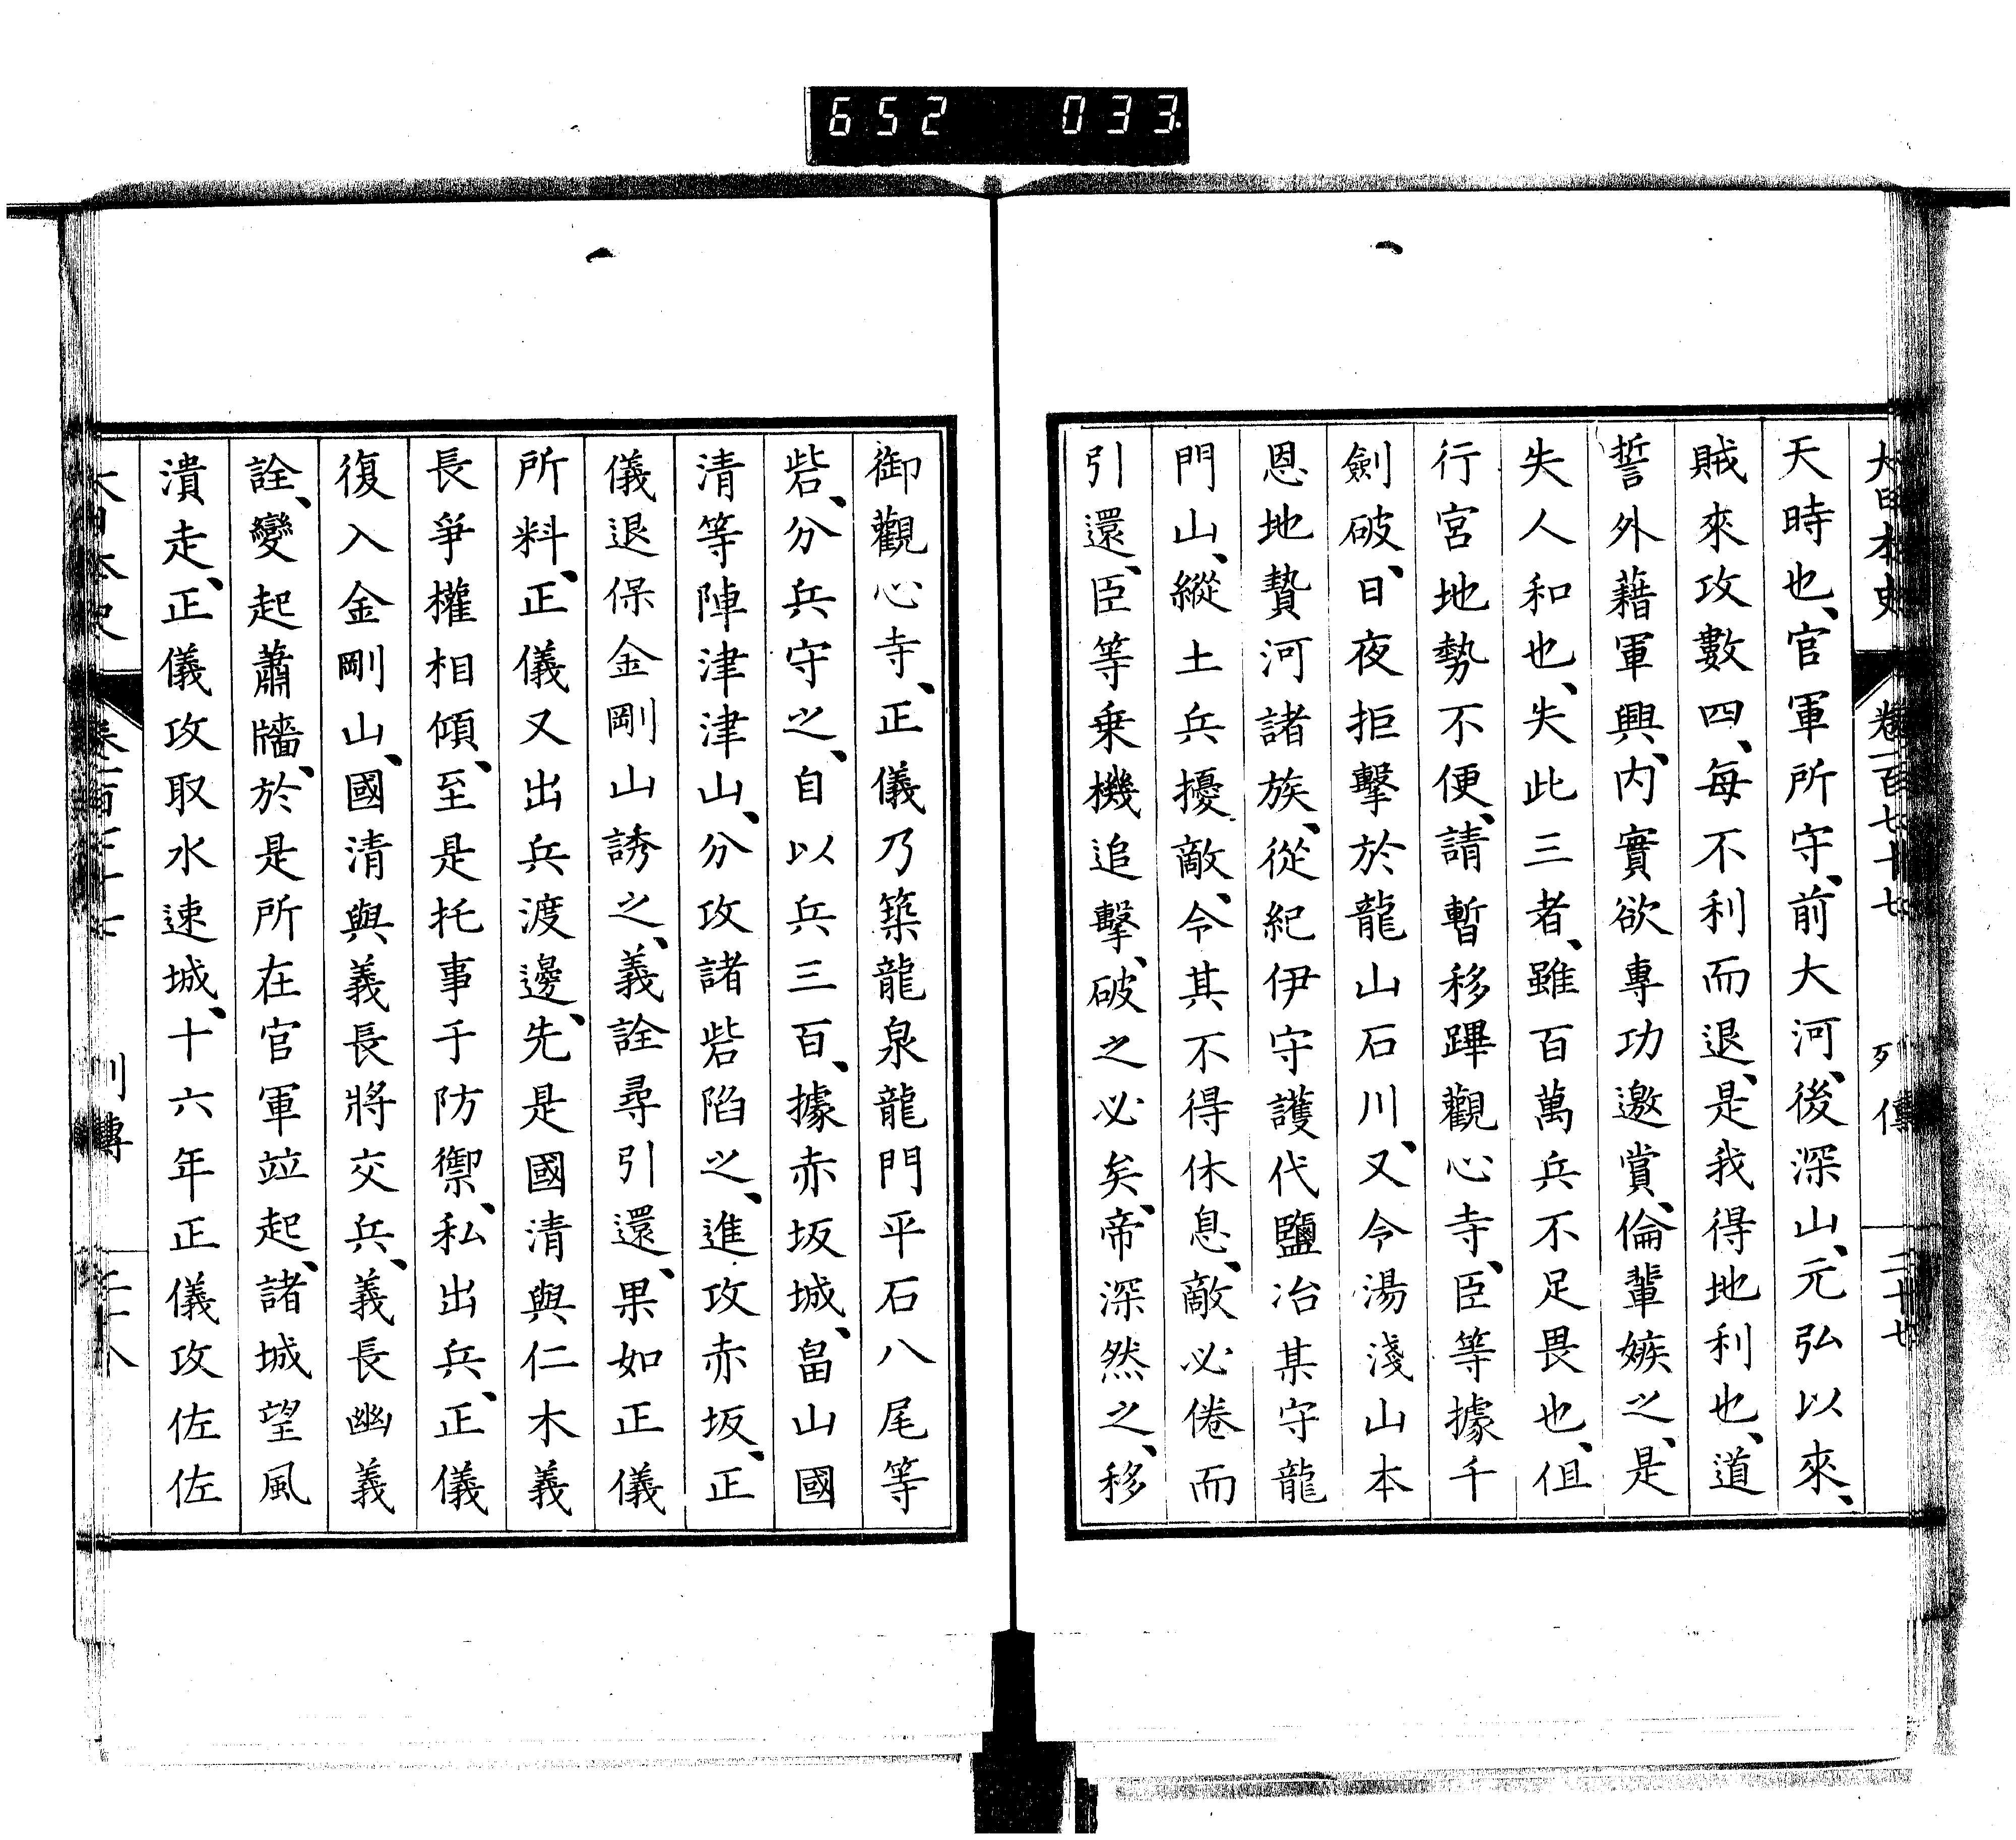 652 033
大日本史 卷一百七十七 列傳 二十七
天時也、官軍所守、前大河、後深山、元弘以來、
賊來攻數四、每不利而退、是我得地利也、道
誓外藉軍興、内實欲專功邀賞、倫輩嫉之、是
失人和也、失此三者、雖百萬兵不足畏也、但
行宮地勢不便、請暫移蹕觀心寺、臣等據千
劍破、日夜拒擊於龍山石川、又令湯淺山本
恩地贄河諸族、從紀伊守護代鹽冶某守龍
門山、縱土兵擾敵、令其不得休息、敵必倦而
引還、臣等乗機追擊、破之必矣、帝深然之、移
御觀心寺、正儀乃築龍泉龍門平石八尾等
砦、分兵守之、自以兵三百、據赤坂城、畠山國
清等陣津津山、分攻諸砦陷之、進攻赤坂、正
儀退保金剛山誘之、義詮尋引還、果如正儀
所料、正儀又出兵渡邊、先是國清與仁木義
長爭權相傾、至是托事于防禦、私出兵、正儀
復入金剛山、國清與義長將交兵、義長幽義
詮、變起蕭牆、於是所在官軍竝起、諸城望風
潰走、正儀攻取水速城、十六年正儀攻佐佐
大日本史 卷一百七十七 列傳